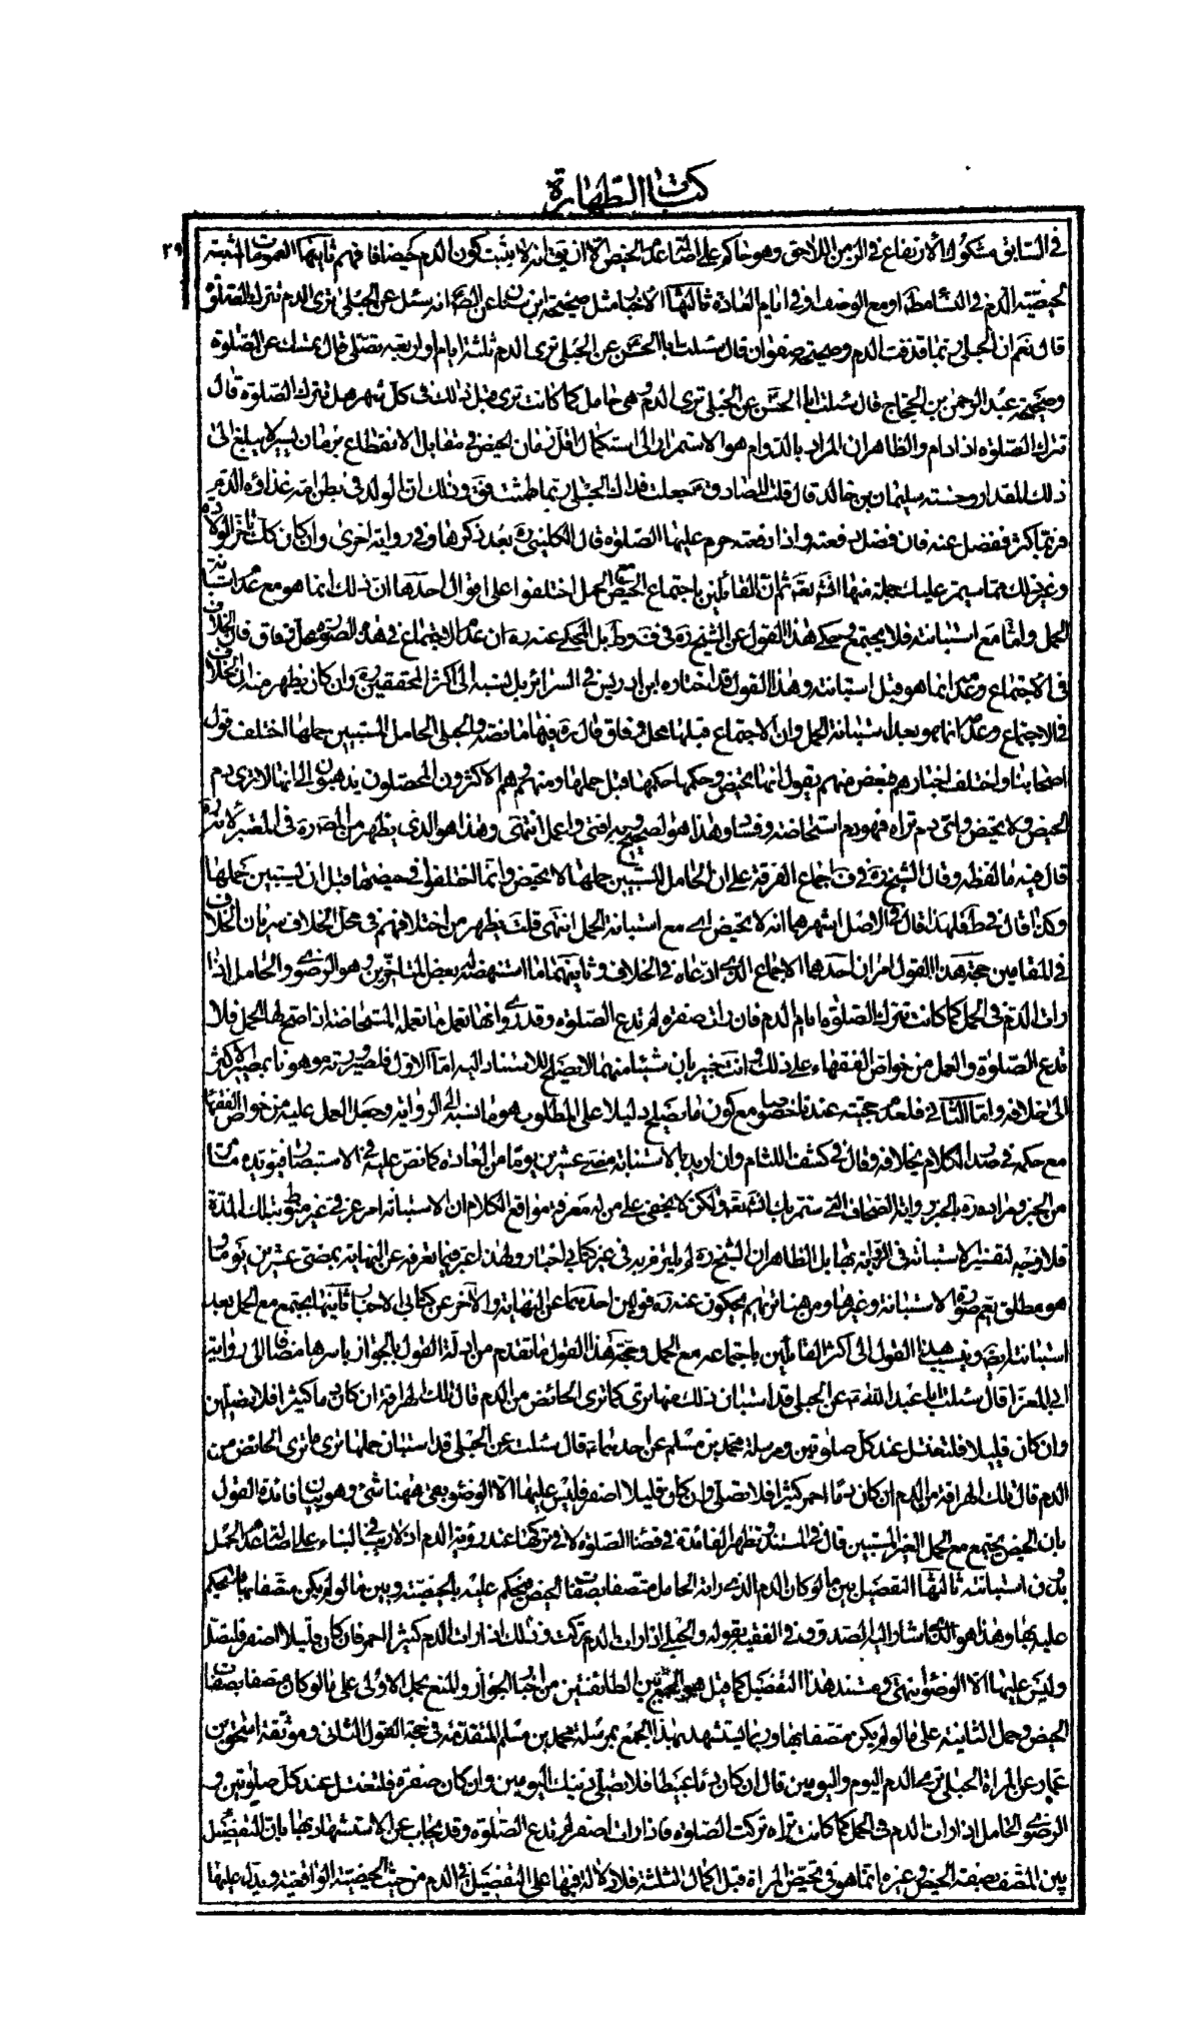 كتاب الطهارة
٢٩
في السابق مشكوك الارتفاع في الزمن اللاحق وهو حاكم على اصالة عدم الحيض الا ان يق انه لا يثبت كون الدم حيضا فافهم ثانيها العمومات المثبتة
لحيضية الدم في الثلثة مط او مع الوصف او في ايام العادة ثالثها الاخبار مثل صحيحة ابن سنان عن الصّ انه سئل عن الحبلى ترى الدم تترك الصلوة
قال نعم ان الحبلى ربما قذفت الدم وصحيحة صفوان قال سئلت ابا الحسن عن الحبلى ترى الدم ثلثة ايام او اربعة تصلى قال تمسك عن الصلوة
وصحيحة عبد الرحمن بن الحجاج قال سئلت ابا الحسن عن الحبلى ترى الدم وهى حامل كما كانت ترى قبل ذلك في كل شهر هل تترك الصلوة قال
تترك الصلوة اذا دام والظاهر ان المراد بالدوام هو الاستمرار الى استكمال اقل زمان الحيض في مقابل الانقطاع بزمان يسير لا يبلغ الى
ذلك المقدار وحسنة سليمان بن خالد قال قلت للصادق ع جعلت فداك الحبلى ربما طمثت فق نعم وذلك ان الولد في بطن امه غذاؤه الدم
فربما كثر ففضل عنه فان فضل دفعته واذا دفعته حرم عليها الصلوة قال الكليني ره بعد ذكرها وفي رواية اخرى وان كان كك تاخر الولادة
وغير ذلك مما سيمر عليك جملة منها انش تع ثم ان القائلين باجتماع الحيض مع الحمل اختلفوا على اقوال احدها ان ذلك انما هو مع عدم استبانة
الحمل واما مع استبانته فلا يجتمع وحكى هذا القول عن الشيخ ره في ف وط بل المحكى عنه ره ان عدم الاجتماع في هذه الصورة محل وفاق فان الخلاف
في الاجتماع وعدمه انما هو قبل استبانته وهذا القول قد اختاره ابن ادريس في السرائر بل نسبه الى اكثر المحققين وان كان يظهر منه ان الخلاف
في الاجتماع وعدمه انما هو بعد استبانة الحمل وان الاجتماع قبلها محل وفاق قال ره فيها ما نصه والحبلى الحامل المستبين حملها اختلف قول
اصحابنا واختلف اخبارهم فبعض منهم يقول انها تحيض وحكمها حكمها قبل حملها ومنهم وهم الاكثرون المحصلون يذهبون الى انها لا ترى دم
الحيض ولا تحيض ومتى دم تراه فهو دم استحاضة وفساد وهذا هو الصحيح وبه افتى واعمل انتهى وهذا هو الذي يظهر من المص ره في المعتبر لانه ره
قال فيه ما لفظه وقال الشيخ ره في ف اجماع الفرقة على ان الحامل المستبين حملها لا تحيض وانما اختلفوا في حيضها قبل ان يستبين حملها
وكذا قال في ط فلهذا قال في الاصل اشهرهما انه لا تحيض اى مع استبانة الحمل انتهى قلت يظهر من اختلافهم في محل الخلاف سريان الخلاف
في المقامين حجة هذا القول امران احدهما الاجماع الذي ادعاه في الخلاف وثانيهما ما استنهضه بعض المتاخرين وهو الرضوى والحامل اذا
رات الدم في الحمل كما كانت تترك الصلوة ايام الدم فان رات صفرة لم تدع الصلوة وقد روى انها تعمل ما تعمله المستحاضة اذا صح لها الحمل فلا
تدع الصلوة والعمل من خواص الفقهاء على ذلك وانت خبير بان شيئا منهما لا يصلح للاستناد اليه اما الاول فلصيرورته موهونا بمصير الاكثر
الى خلافه واما الثاني فلعدم حجيته عندنا خصوصا مع كون ما يصلح دليلا على المطلوب هو ما نسبه الى الرواية وجعل العمل عليه من خواص الفقهاء
مع حكمه في صدر الكلام بخلافه وقال في كشف اللثام وان اريد بالاستبانة مضى عشرين يوما من العادة كما نص عليه في الاستبصار فيؤيده ما مر
من الخبر ومراده ره بالخبر رواية الصحاف التي ستمر بك انش تع ولكن لا يخفى على من له معرفة بمواقع الكلام ان الاستبانة امر عرفي غير منوط بتلك المدة
فلا وجه لتفسير الاستبانة في الرواية بها بل الظاهر ان الشيخ ره لم يلتزم به في غير كتابى الاخبار ولهذا عبر فيما نعرفه عن النهاية بمضى عشرين يوما
هو مطلق يعم صورة الاستبانة وغيرها ومن هنا تريهم يحكون عنه ره قولين احدهما عن النهاية والآخر عن كتابى الاخبار ثانيها يجتمع مع الحمل بعد
استبانته ايض وينسب هذا القول الى اكثر القائلين باجتماعه مع الحمل وحجة هذا القول ما تقدم من ادلة القول بالجواز باسرها مضافا الى رواية
ابى المعزا قال سئلت ابا عبد الله ع عن الحبلى قد استبان ذلك منها ترى كما ترى الحائض من الدم قال تلك الهراقة ان كان دما كثيرا فلا تصلين
وان كان قليلا فلتغتسل عند كل صلوتين ومرسلة محمد بن مسلم عن احدهما ع قال سئلت عن الحبلى قد استبان حملها ترى ما ترى الحائض من
الدم قال تلك الهراقة من الدم ان كان دما احمر كثيرا فلا تصلى وان كان قليلا اصفر فليس عليها الا الوضوء بقى ههنا شئ وهو بيان فائدة القول
بان الحيض يجتمع مع الحمل الغير المستبين قال في المستند وتظهر الفائدة في قضاء الصلوة لا في تركها عند رؤية الدم اذ لا ريب في البناء على اصالة عدم الحمل
بدون استبانته ثالثها التفصيل بين ما لو كان الدم الذي راته الحامل متصفا بصفات الحيض فيحكم عليه بالحيضية وبين ما لو لم يكن متصفا بها فلا يحكم
عليه بها وهذا هو الذي اشار اليه الصدوق ره في الفقيه بقوله والحبلى اذا رات الدم تركت وذلك اذا رات الدم كثيرا احمر فان كان قليلا اصفر فليصل
وليس عليها الا الوضوء انتهى ومستند هذا التفصيل كما قيل هو الجمع بين الطائفتين من اخبار الجواز والمنع بحمل الاولى على ما لو كان متصفا بصفات
الحيض وحمل الثانية على ما لو لم يكن متصفا بها وربما يستشهد بهذا الجمع بمرسلة محمد بن مسلم المتقدمة في حجة القول الثاني وموثقة اسحق بن
عمار عن المراة الحبلى ترى الدم اليوم واليومين قال ان كان دما عبيطا فلا تصلى ذينك اليومين وان كان صفرة فلتغتسل عند كل صلوتين و
الرضوى الحامل اذا رات الدم في الحمل كما كانت تراه تركت الصلوة فاذا رات اصفر لم تدع الصلوة وقد يجاب عن الاستشهاد بها بان التفصيل
بين المتصف بصفة الحيض وغيره انما هو في تحيض المراة قبل اكمال الثلثة فلا دلالة فيها على التفصيل في الدم من حيث الحيضية الواقعية ويدل عليها